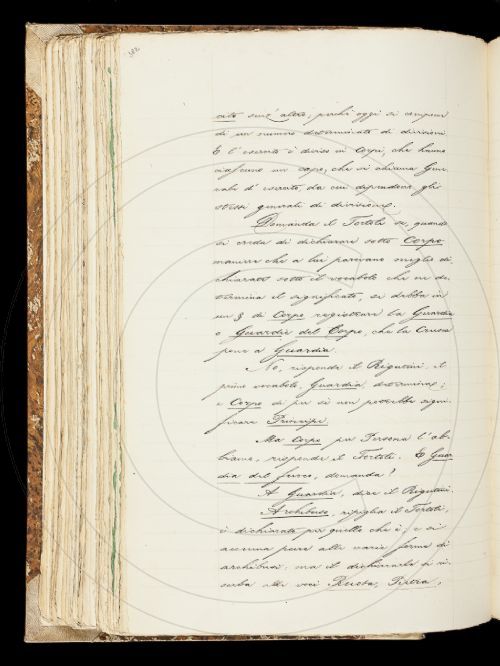 382
cito senz'altro, perchè oggi si compone
di un numero determinato di divisioni
E l'esercito è diviso in Corpi, che hanno
ciascuno un capo, che si chiama Gene-
rale d'esercito, da cui dipendono gli
stessi generali di divisione.
Domanda il Tortoli se, quando
si creda di dichiarare sotto Corpo
maniere che a lui parevano meglio di-
chiarate sotto il vocabolo che ne de-
termina il significato, si debba in
un § di Corpo registrare la Guardia
o Guardie del Corpo, che la Crusca
pone a Guardia.
No, risponde il Rigutini, il
primo vocabolo, Guardia, determina;
e Corpo di per sè non potrebbe signi-
ficare Principe.
Ma Corpo per Persona l'ab-
biamo, risponde il Tortoli. E Guar-
dia del fuoco, domanda?
A Guardia, dice il Rigutini.
Archibuso, ripiglia il Tortoli,
è dichiarato per quello che è, e si
accenna pure alle varie forme di
archibusi, ma il dichiararle si ri-
serba alle voci Ruota, Pietra,